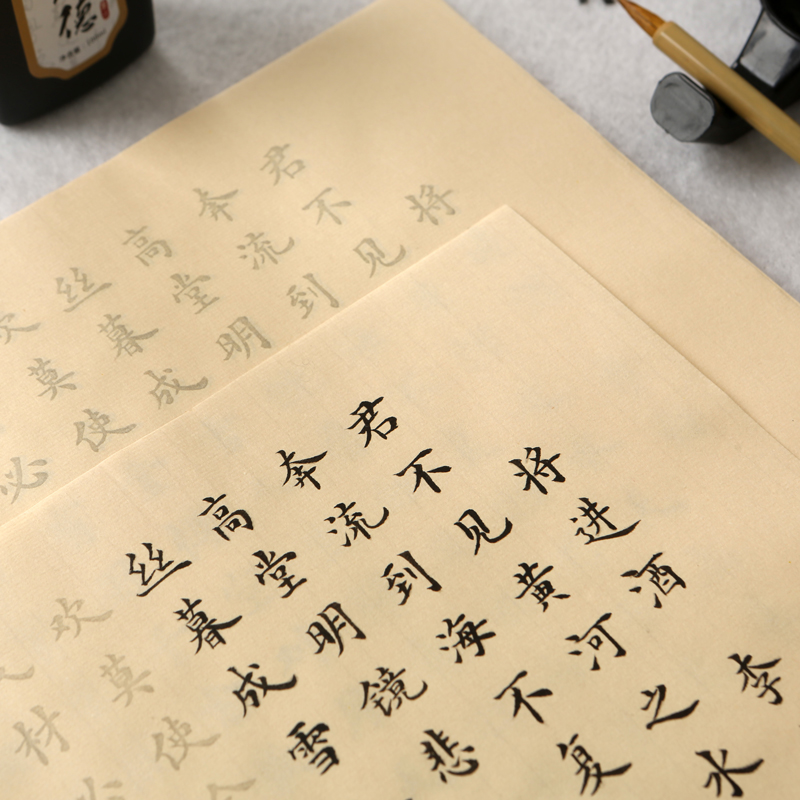 将进酒 李
君不见黄河之水
奔流到海不复
高堂明镜悲
丝暮成雪
欢莫使
材必
将
君不见
奔流到
高堂明
丝暮成
欢莫使
必
德